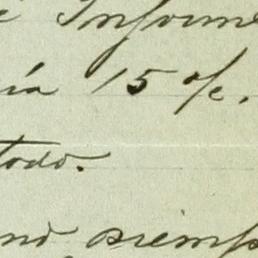 é Informe
ía 15 %.
todo.
no siemp